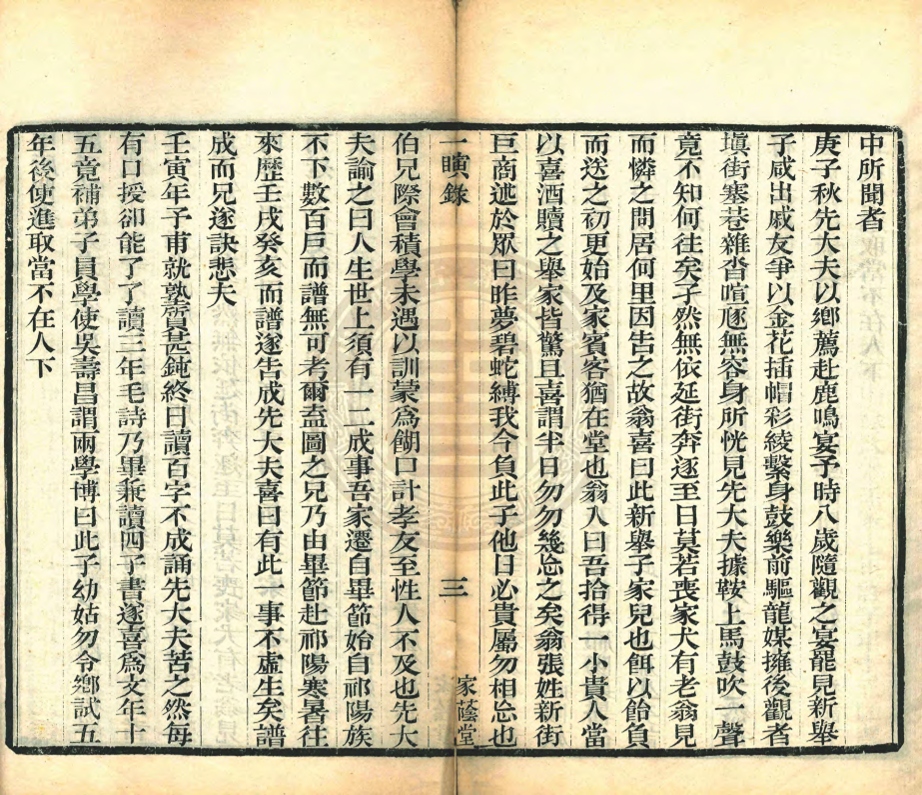 中所聞者
庚子秋先大夫以鄉薦赴鹿鳴宴予時八歲隨觀之宴罷見新舉
子咸出戚友爭以金花插帽彩綾繫身鼓樂前驅龍媒擁後觀者
塡街塞巷雜沓喧豗無容身所恍見先大夫據鞍上馬鼓吹一聲
竟不知何往矣孑然無依延街奔逐至日莫若喪家犬有老翁見
而憐之問居何里因告之故翁喜曰此新舉子家兒也餌以飴負
而送之初更始及家賓客猶在堂也翁入曰吾拾得一小貴人當
以喜酒贖之舉家皆驚且喜謂半日勿勿幾忘之矣翁張姓新街
巨商述於眾曰昨夢碧蛇縛我今負此子他日必貴屬勿相忘也
一瞚錄 三 家蔭堂
伯兄際會積學未遇以訓蒙爲餬口計孝友至性人不及也先大
夫諭之曰人生世上須有一二成事吾家遷自畢節始自祁陽族
不下數百戶而譜無可考爾盍圖之兄乃由畢節赴祁陽寒暑往
來歷壬戌癸亥而譜遂告成先大夫喜曰有此一事不虛生矣譜
成而兄遂訣悲夫
壬寅年予甫就塾質甚鈍終日讀百字不成誦先大夫苦之然每
有口授卻能了了讀三年毛詩乃畢兼讀四子書遂喜爲文年十
五竟補弟子員學使吳壽昌謂兩學博曰此子幼姑勿令鄉試五
年後使進取當不在人下